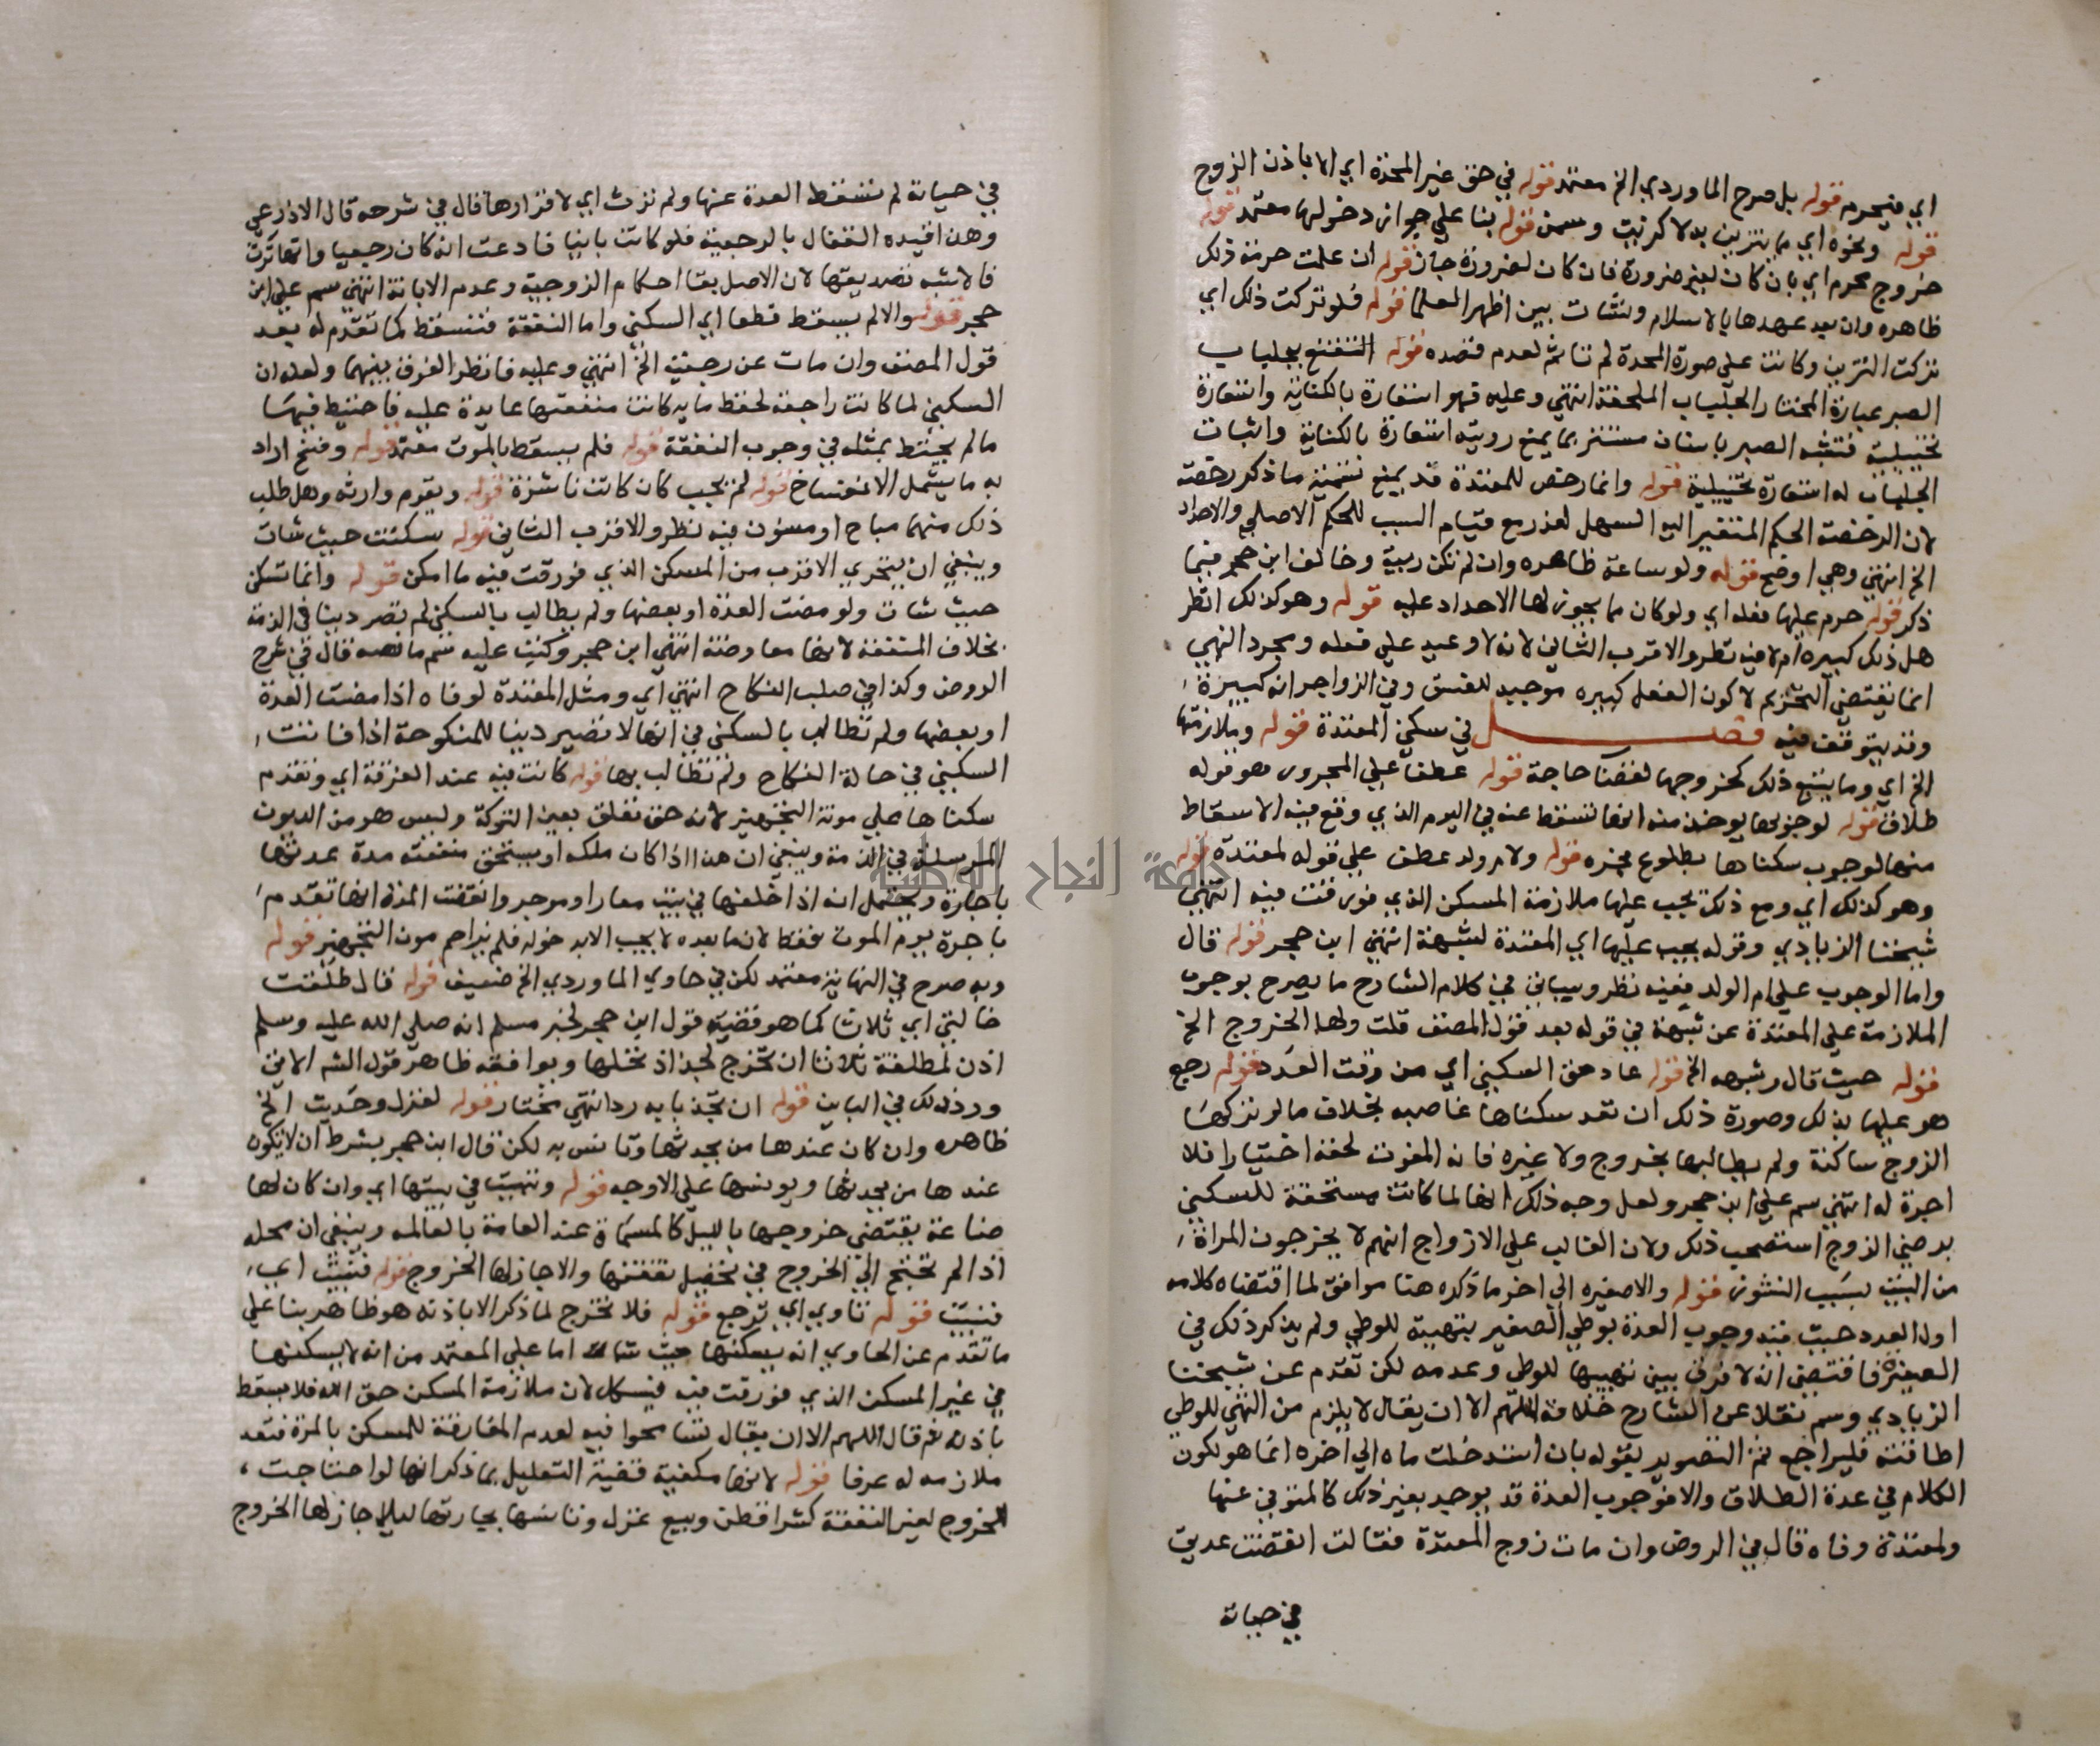 اي فيحرم قوله بل صرح الماوردي الخ معتمد قوله في حق غير المحدة اي الا باذن الزوج
قوله ونحوه اي مما يتزين به لا كزيت وسمن قوله بنا علي جواز دخولها معتمد قوله
خروج محرم اي بان كان لغير ضرورة فان كان لضرورة جاز قوله ان علمت حرمة ذلك
ظاهره وان بعد عهدها بالاسلام ونشات بين اظهر العلما قوله فلو تركت ذلك اي
تركت التزين وكانت علي صورة المحدة لم تاثم لعدم قصده قوله التقنع بجلباب
الصبر عبارة المختار الجلباب الملحفة انتهي وعليه فهو استعارة بالكناية واستعارة
تخييلية فتشبه الصبر بانسان مستتر بما يمنع رويته استعارة بالكناية واثبات
الجلباب له استعارة تخييلية قوله وانما رخص للمعتدة قد يمنع تسمية ما ذكر رخصة
لان الرخصة الحكم المتغير اليه السهل لعذر مع قيام السبب للحكم الاصلي والاحداد
الخ انتهي وهي اوضح قوله ولو ساعة ظاهره وان لم تكن ريبة وخالف ابن حجر فيما
ذكر قوله حرم عليها فعله اي ولو كان مما يجوز لها الاحداد عليه قوله وهو كذلك انظر
هل ذلك كبيره ام لا فيه نظر والاقرب الثاني لانه لا وعيد علي فعله ومجرد النهي
انما يقتضي التحريم لا كون الفعل كبيره موجبه للفسق وفي الزواجر انه كبيرة
وقد يتوقف فيه فصل في سكني المعتدة قوله وملازمتها
الخ اي وما يتبع ذلك كخروجها لقضا حاجة قوله عطف علي المجرور هو قوله
طلاق قوله لوجوبها يوخذ منه انها تسقط عنه في اليوم الذي وقع فيه الاسقاط
منها لوجوب سكناها بطلوع فجره قوله ولام ولد عطف علي قوله لمعتدة قوله
وهو كذلك اي ومع ذلك يجب عليها ملازمة المسكن الذي فورقت فيه انتهي
شيخنا الزيادي وقوله يجب عليها اي المعتدة لشبهة انتهي ابن حجر قوله قال
واما الوجوب علي ام الولد ففيه نظر وسياتي في كلام الشارح ما يصرح بوجوب
الملازمة علي المعتدة عن شبهة في قوله بعد قول المصنف قلت ولها الخروج الخ
قوله حيث قال وشبهه الخ قوله عاد حق السكني اي من وقت العود قوله رجع
هو عليها بذلك وصورة ذلك ان تعد سكناها غاصبه بخلاف ما لو تركها
الزوج ساكنة ولم يطالبها بخروج ولا غيره فانه المفوت لحقه اختيارا فلا
اجرة له انتهي سم علي ابن حجر ولعل وجه ذلك انها لما كانت مستحقة للسكني
برضي الزوج استصحب ذلك ولان الغالب علي الازواج انهم لا يخرجون المراة
من البيت بسبب النشوز قوله والاصغيره الي اخر ما ذكره هنا موافق لما اقتضاه كلامه
اول العدد حيث قيد وجوب العدة بوطي الصغير بتهيية للوطي ولم يذكر ذلك في
الصغيرة فاقتضي انه لا فرق بين تهييها للوطي وعدمه لكن تقدم عن شيخنا
الزيادي وسم نقلا عن الشارح خلافه اللهم الا ان يقال لا يلزم من التهي للوطي
اطاقته فليراجع ثم التصوير بقوله بان استدخلت ماه الي اخره انما هو لكون
الكلام في عدة الطلاق والا فوجوب العدة قد يوجد بغير ذلك كالمتوفي عنها
ولمعتدة وفاه قال في الروض وان مات زوج المعتدة فقالت انقضت عدتي
في حياته
في حياته لم تسقط العدة عنها ولم ترث اي لاقرارها قال في شرحه قال الاذرعي
وهذا قيده القفال بالرجعية فلو كانت باينا فادعت انه كان رجعيا وانها ترث
فالاشبه تصديقها لان الاصل بقا احكام الزوجية وعدم الابانة انتهي سم علي ابن
حجر قوله والا لم يسقط قطعا اي السكني واما النفقة فتسقط كما تقدم له بعد
قول المصنف وان مات عن رجعية الخ انتهي وعليه فانظر الفرق بينهما ولعله ان
السكني لما كانت راجعة لحفظ مايه كانت منفعتها عايدة عليه فاحتيط فيها
ما لم يحتط بمثله في وجوب النفقة قوله فلم يسقط بالموت معتمد قوله وفسخ اراد
به ما يشمل الانفساخ قوله لم تجب كان كانت ناشزة قوله ويقوم وارثه وهل طلب
ذلك منهما مباح او مسنون فيه نظر والاقرب الثاني قوله سكنت حيث شات
وينبغي ان يتحري الاقرب من المسكن الذي فورقت فيه ما امكن قوله وانما تسكن
حيث شات ولو مضت العدة او بعضها ولم يطالب بالسكني لم تصر دينا في الذمة
بخلاف النفقة لانها معاوضة انتهي ابن حجر وكتب عليه سم ما نصه قال في شرح
الروض وكذا في صلب النكاح انتهي اي ومثل المعتدة لوفاه اذا مضت العدة
او بعضها ولم تطالب بالسكني في انها لا تصير دينا للمنكوحة اذا فاتت
السكني في حالة النكاح ولم تطالب بها قوله كانت فيه عند الفرقة اي وتقدم
سكناها علي مونة التجهيز لانه حق تعلق بعين التركة وليس هو من الديون
المرسلة في الذمة وينبغي ان هذا اذا كان ملكه او يستحق منفعته مدة عدتها
باجارة ويحتمل انه اذا خلفها في بيت معار او موجر وانقضت المدة انها تقدم
باجرة يوم الموت فقط لان ما بعده لا يجب الا به حوله فلم يزاحم مون التجهيز قوله
وبه صرح في النهاية معتمد لكن في حاوي الماوردي الخ ضعيف قوله قال طلقت
خالتي اي ثلاثا كما هو قضية قول ابن حجر لخبر مسلم انه صلي الله عليه وسلم
اذن لمطلقة ثلاثا ان تخرج لجذاذ نخلها ويوافقه ظاهر قول الشه الاتي
وردذلك في الباين قوله ان تجذ بابه رد انتهي مختار قوله لغزل وحديث الخ
ظاهره وان كان عندها من يحدثها وتانس به لكن قال ابن حجر بشرط ان لا يكون
عندها من يحدثها ويونسها علي الاوجه قوله وتبيت في بيتها اي وان كان لها
صناعة يقتضي خروجها بالليل كالمسماة عند العامة بالعالمه وينبغي ان محله
اذا لم تحتج الي الخروج في تحصيل نفقتها والا جاز لها الخروج قوله فتبيت اي
فتبيت قوله تاوي اي ترجع قوله فلا تخرج لما ذكر الا باذنه هو ظاهر بنا علي
ما تقدم عن الحاوي انه يسكنها حيث شا اما علي المعتمد من انه لا يسكنها
في غير المسكن الذي فورقت فيه فيشكل لان ملازمة المسكن حق الله فلا يسقط
باذنه ثم قال اللهم الا ان يقال تسامحوا فيه لعدم المفارقة للمسكن بالمرة فتعد
ملازمه له عرفا قوله لانها مكفية قضية التعليل بما ذكر انها لو احتاجت
للخروج لغير النفقة كشرا قطن وبيع غزل وتانسها بجارتها ليلا جاز لها الخروج